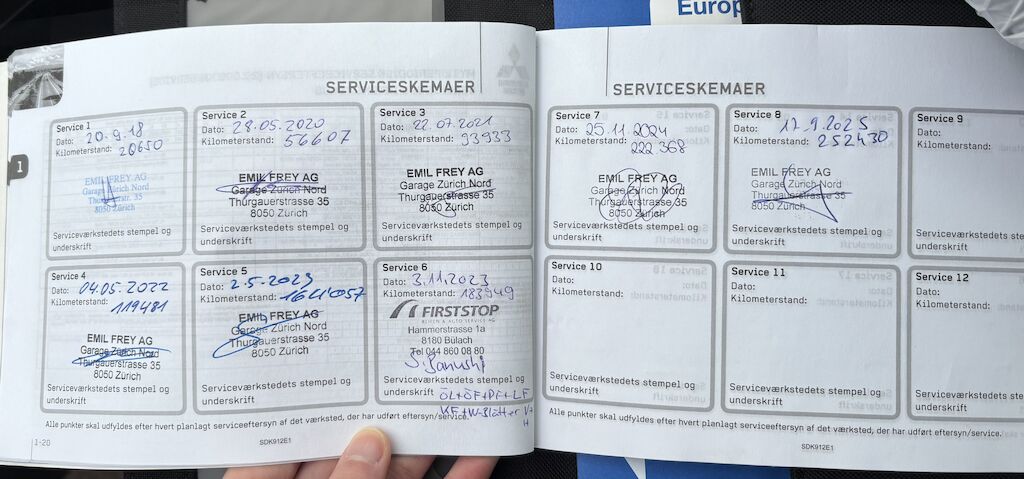 Europ
SERVICESKEMAER
Service 1
Dato: 20.9.18
Kilometerstand: 20650
EMIL FREY AG
Garage Zürich Nord
Thurgauerstr. 35
8050 Zürich
Serviceværkstedets stempel og
underskrift
Service 2
Dato: 28.05.2020
Kilometerstand: 56607
EMIL FREY AG
Garage Zürich Nord
Thurgauerstrasse 35
8050 Zürich
Serviceværkstedets stempel og
underskrift
Service 3
Dato: 22.07.2021
Kilometerstand: 93933
EMIL FREY AG
Garage Zürich Nord
Thurgauerstrasse 35
8050 Zürich
Serviceværkstedets stempel og
underskrift
1
Service 4
Dato: 04.05.2022
Kilometerstand:
119481
EMIL FREY AG
Garage Zürich Nord
Thurgauerstrasse 35
8050 Zürich
Serviceværkstedets stempel og
underskrift
Service 5
Dato: 2.5.2023
Kilometerstand: 164'057
EMIL FREY AG
Garage Zürich Nord
Thurgauerstrasse 35
8050 Zürich
Serviceværkstedets stempel og
underskrift
Service 6
Dato: 3.11.2023
Kilometerstand: 183949
FIRSTSTOP
REIFEN & AUTO SERVICE AG
Hammerstrasse 1a
8180 Bülach
Tel 044 860 08 80
Serviceværkstedets stempel og
underskrift ÖL+ÖF+PF+LF
KF+W-Blätter V+
H
Alle punkter skal udfyldes efter hvert planlagt serviceeftersyn af det værksted, der har udført eftersyn/service.
1-20
SDK912E1
SERVICESKEMAER
Service 7
Dato: 25.11.2024
Kilometerstand:
222.368
EMIL FREY AG
Garage Zürich Nord
Thurgauerstrasse 35
8050 Zürich
Serviceværkstedets stempel og
underskrift
Service 8
Dato: 17.9.2025
Kilometerstand: 252430
EMIL FREY AG
Garage Zürich Nord
Thurgauerstrasse 35
8050 Zürich
Serviceværkstedets stempel og
underskrift
Service 9
Dato:
Kilometerstand:
Serviceværkstedets stempel og
underskrift
Service 10
Dato:
Kilometerstand:
Serviceværkstedets stempel og
underskrift
Service 11
Dato:
Kilometerstand:
Serviceværkstedets stempel og
underskrift
Service 12
Dato:
Kilometerstand:
Serviceværkstedets stempel og
underskrift
Alle punkter skal udfyldes efter hvert planlagt serviceeftersyn af det værksted, der har udført eftersyn/service.
SDK912E1